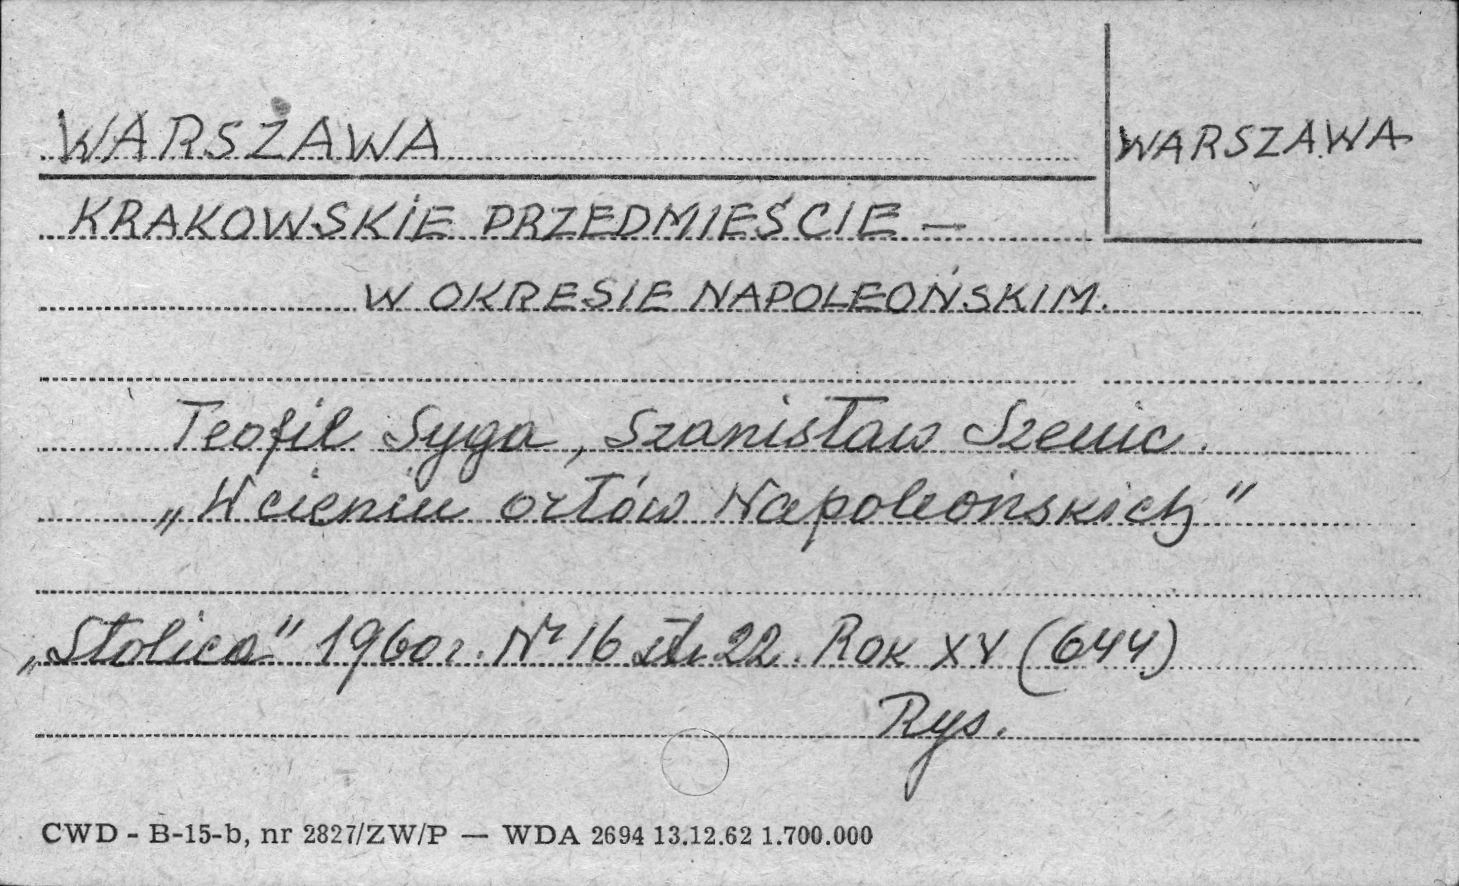 WARSZAWA
WARSZAWA
KRAKOWSKIE PRZEDMIEŚCIE —
W OKRESIE NAPOLEOŃSKIM.
Teofil Syga, Szanisław Szenic.
„W cieniu orłów Napoleońskich”
„Stolica” 1960 r. Nr 16 str 22. Rok XV (644)
Rys.
CWD - B-15-b, nr 2827/ZW/P — WDA 2694 13.12.62 1.700.000